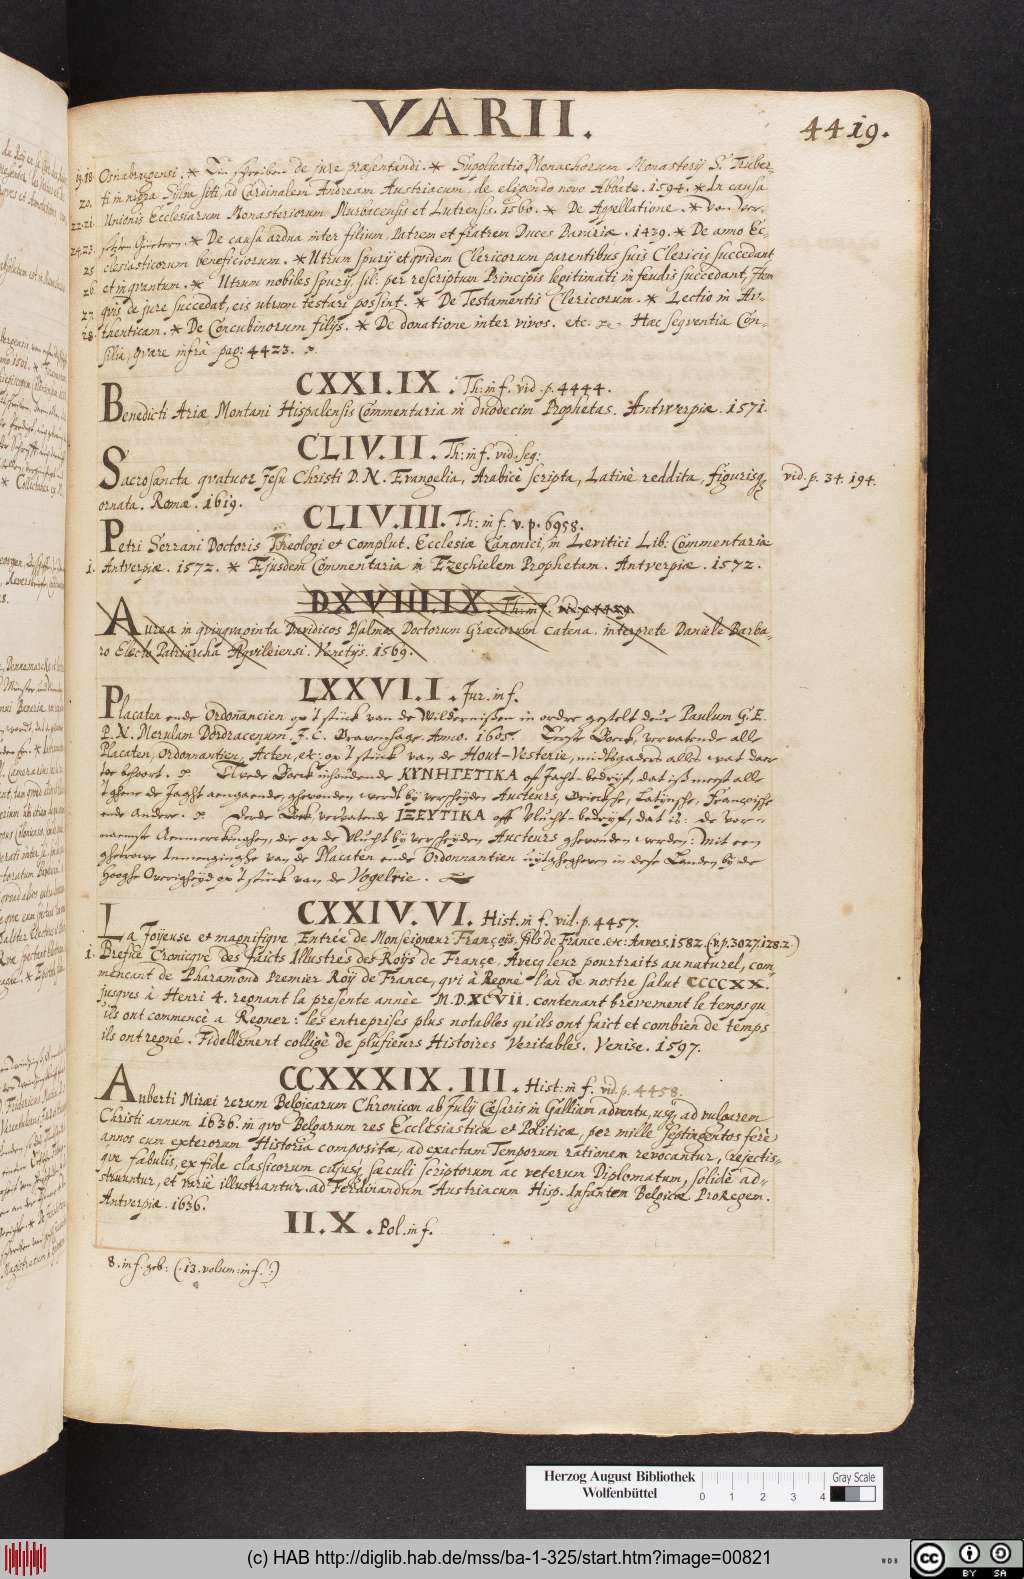 VARII.
4419.
Osnabrugensi. * Ein schreiben de jure præsentandi. * Supplicatio Monachorum Monasterij S. Huber-
ti in nigra Sylva siti, ad Cardinalem Andream Austriacum, de eligendo novo Abbate. 1594. * In causa
Unionis Ecclesiarum Monasteriorum Murbacensis et Lutrensis. 1560. * De Appellatione. * Von
* De causa ardua inter filium, Patrem et fratrem Duces Bavariæ. 1439. * De anno Ec-
clesiasticorum beneficiorum. * Utrum spurij et quidem Clericorum parentibus suis Clericis succedant
et in quantum. * Utrum nobiles spurij, sil: per rescriptum Principis legitimati in feudis succedant, Item
quis de jure succedat, eis utrum testari possint. * De Testamentis Clericorum. * Lectio in Au-
thenticam. * De Concubinorum filijs. * De donatione inter vivos. etc. Hæc seqventia Con-
silia, qvære infrà pag: 4423.
CXXI.IX. Th: in f. vid. p. 4444.
Benedicti Ariæ Montani Hispalensis Commentaria in duodecim Prophetas. Antwerpiæ. 1571.
CLIV.II. Th: in f. vid. seq:
Sacrosancta qvatuor Jesu Christi D.N. Evangelia, Arabicè scripta, Latinè reddita, figurisq; vid. p. 34. 194.
ornata. Romæ. 1619.
CLIV.III. Th: in f. v. p. 6958.
Petri Serrani Doctoris Theologi et Complut. Ecclesiæ Canonici, in Levitici Lib: Commentaria
1. Antverpiæ. 1572. * Ejusdem Commentaria in Ezechielem Prophetam. Antverpiæ. 1572.
DXVIII.IX. Th: in f.
Aurea in qvinqvaginta Davidicos Psalmos Doctorum Græcorum catena. interprete Daniele Barba-
ro Electo Patriarcha Aqvileiensi. Venetijs. 1569.
LXXVI.I. Jur. in f.
Placaten ende Ordonnancien op 't stück van de Wildernissen in ordre gestelt deur Paulum G.F.
P.N. Merulam Dordracenum. J.C. Gravenhage Anno. 1605. Eerste Boeck, vervatende alle
Placaten, Ordonnantien, Acten, etc: op 't stück van de Hout-Vesterie, midtsgaders alles wat daer
toe behoort. Tweede Boeck inhoudende ΚΥΝΗΓΕΤΙΚΑ of Jacht-bedrijf, dat is meest alle
't ghene de Jaght aengaende, ghevonden werdt bij verscheyden Aucteurs, Griecksche, Latijnsche, Françoijsche
ende Andere. Derde Boeck vervatende ΙΞΕΥΤΙΚΑ off Vlucht-bedrijf, dat is: De voor-
naemste Aenmerckinghen, die op de Vlucht bij verscheyden Aucteurs ghevonden werden: Mit een
ghetrouwe Inmenginghe van de Placaten ende Ordonnantien uijtghegheven in dese Landen bij de
Hooghe Overigheijd op 't stück van de Vogelrie.
CXXIV.VI. Hist. in f. vid. p. 4457.
La Joijeuse et magnifiqve Entrée de Monseigneur Françoijs, fils de France. etc: Anvers. 1582. (v. p. 3027. 128.2.)
1. Brefve Cronicqve des faicts Illustres des Roijs de France, Avecq leur pourtraits au naturel, com
mencant de Pharamond Premier Roij de France, qvi à Regné l'an de nostre salut CCCCXX.
jusqves à Henri 4. regnant la presente année M.D.XCVII. contenant brevement le temps qu
'ils ont commencé a Regner: les entreprises plus notables qu'ils ont faict et combien de temps
ils ont regné. Fidellement colligé de plusieurs Histoires Veritables. Venise. 1597.
CCXXXIX.III. Hist: in f. vid. p. 4458.
Auberti Miræi rerum Belgicarum Chronicon ab Julij Cæsaris in Galliam adventu, usq; ad vulgarem
Christi annum 1636. in qvo Belgarum res Ecclesiasticæ et Politicæ, per mille septingentos ferè
annos cum exterorum Historia compositæ, ad exactam Temporum rationem revocantur, rejectis-
qve fabulis, ex fide classicorum cujusq; sæculi scriptorum ac veterum Diplomatum, solidè ad-
struuntur, et variè illustrantur. ad Ferdinandum Austriacum Hisp. Infantem Belgicæ ProRegem.
Antverpiæ. 1636.
II.X. Pol. in f.
8. in f. geb: (. 13. volum: in f.:)
Herzog August Bibliothek
Wolfenbüttel
0 1 2 3 4
Gray Scale
(c) HAB http://diglib.hab.de/mss/ba-1-325/start.htm?image=00821
WDB
cc BY SA